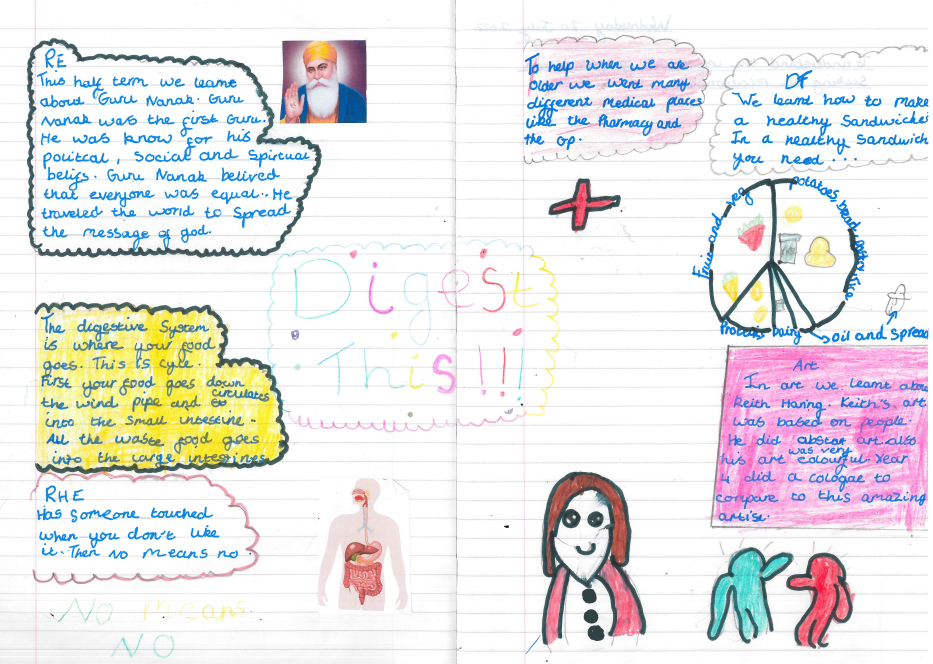 RE
This half term we learne
about Guru Nanak. Guru
Nanak was the first Guru.
He was know for his
poiitcal, Social and Spirtual
beliefs. Guru Nanak belived
that everyone was equal. He
traveled the world to Spread
the message of god.
The digestive System
is where your food
goes. This is cycle.
First your food goes down
the wind pipe and circulates
into the small intestine.
All the waste food goes
into the large intestines
RHE
Has Someone touched
when you don't like
it. Then No Means no.
No means
NO
Digest
This!!!
Wednesday 20 July 2022
To help when we are
older we went many
different medical places
like the Pharmacy and
the GP.
DF
We learnt how to make
a healthy Sandwiche
In a healthy Sandwich
you need...
Fruit and veg
potatoes bread pasta rice
Proteins Dairy
oil and Spread
Art
In art we learnt abou
Keith Haring. Keith's art
was based on people.
He did abstar art also
his art was very colourful. Year
4 did a cologae to
compare to this amazing
artist.